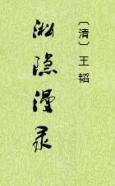 〔清〕王韬
淞隐漫录